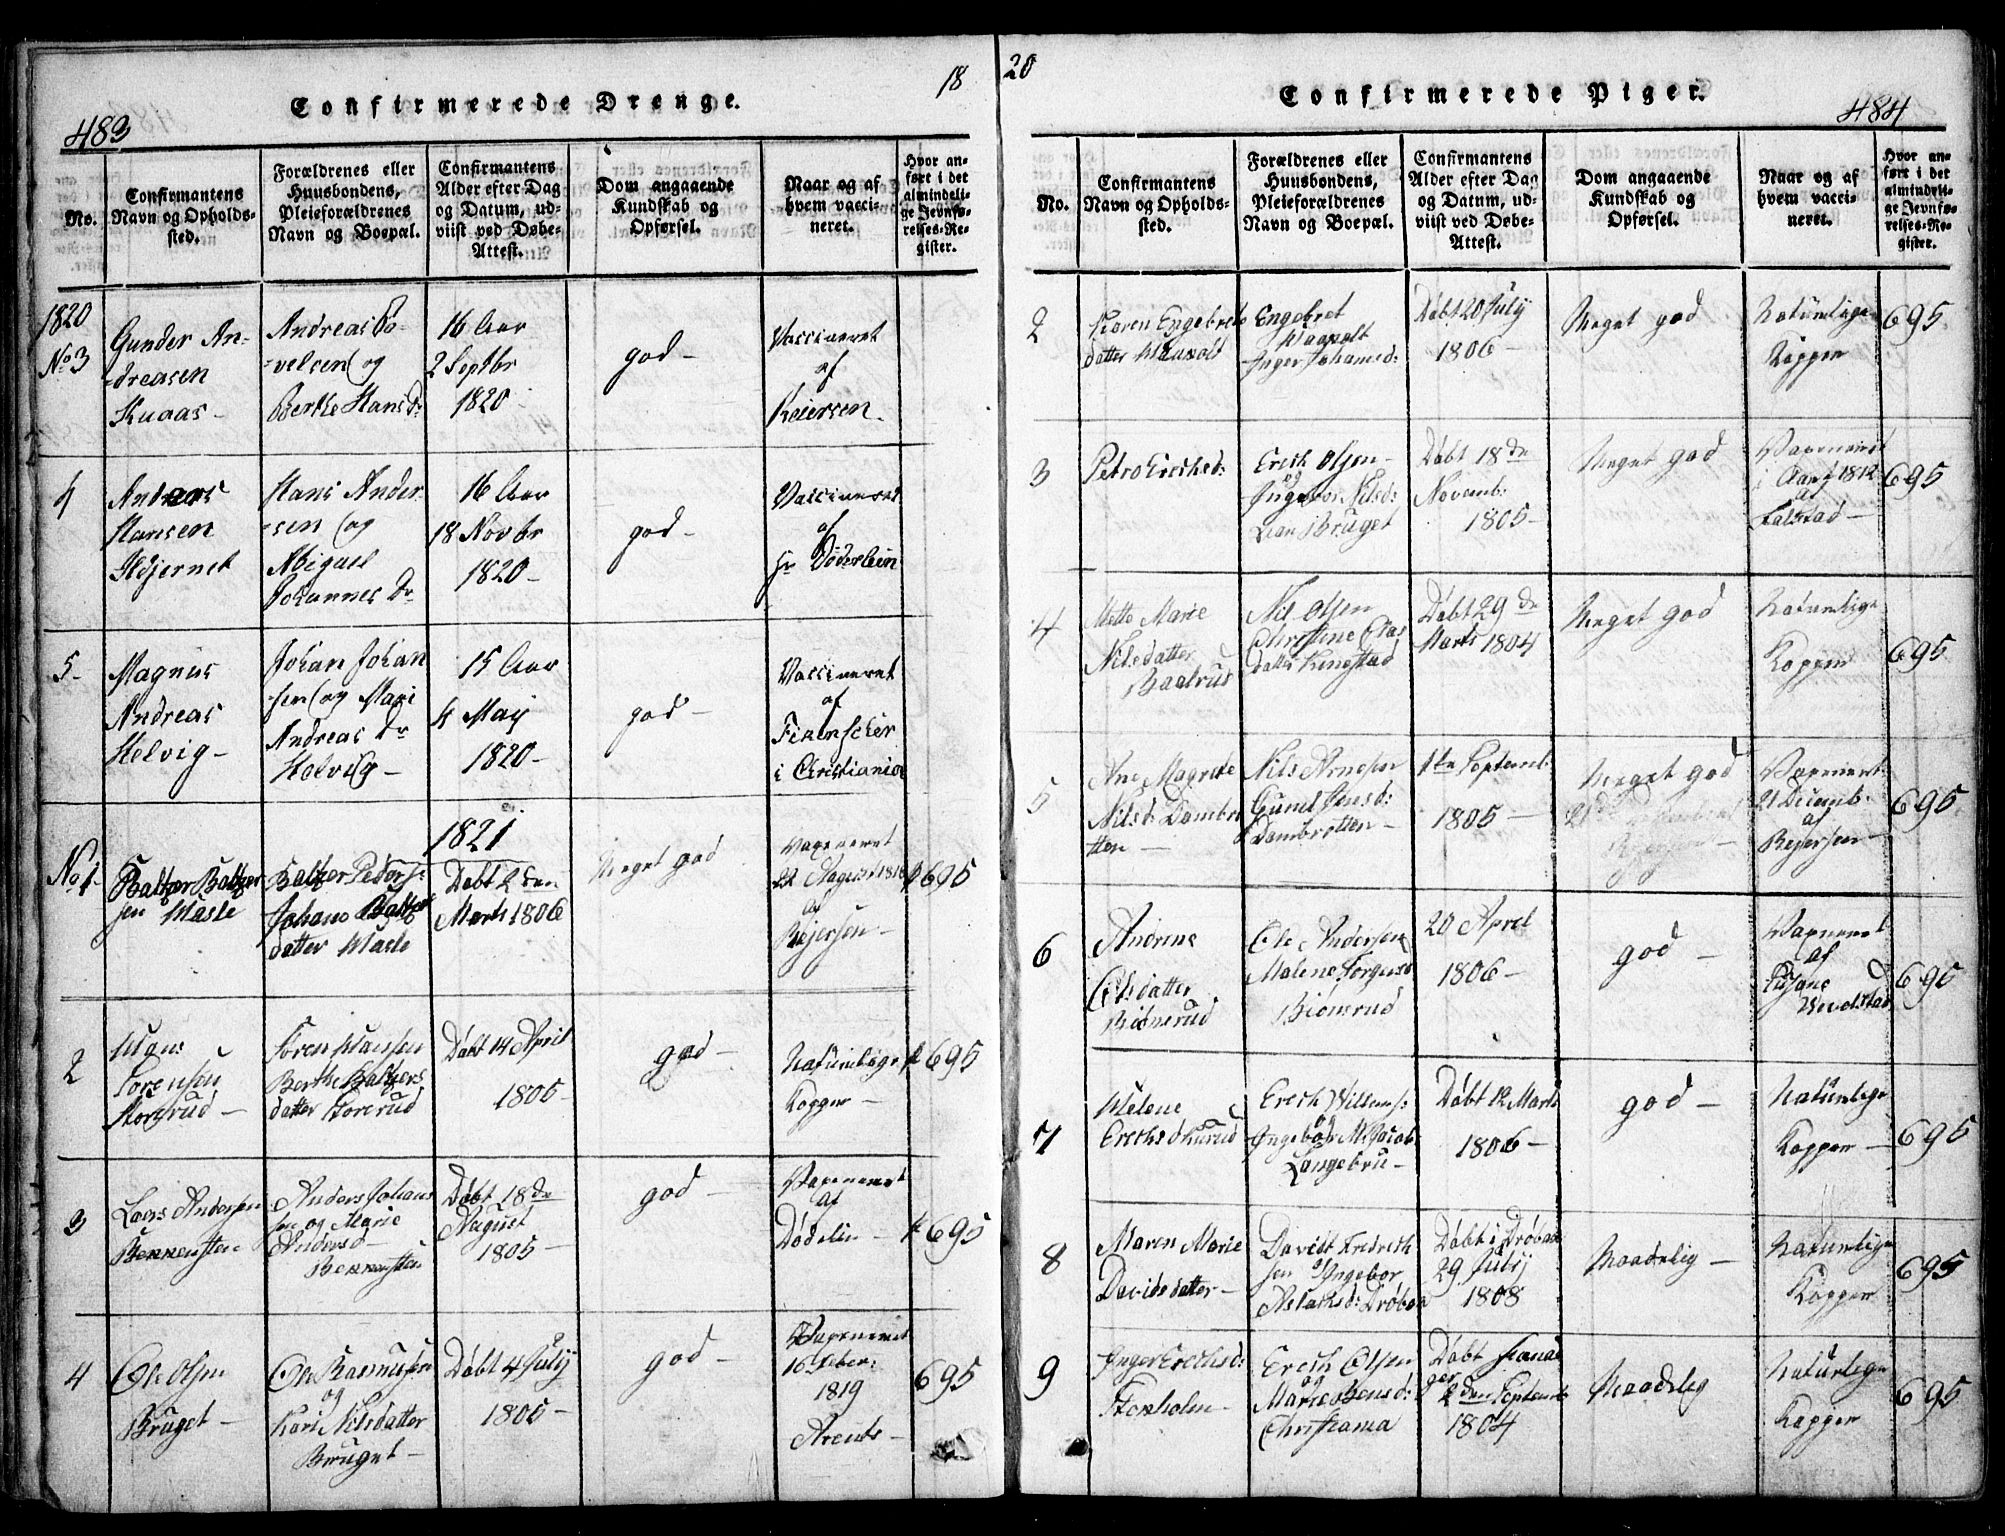 18
20
Confirmerede Drenge.
483
No.
Confirmantens
Navn og Opholds-
sted.
Forældrenes eller
Huusbondens,
Pleieforældrenes
Navn og Boepæl.
Confirmantens
Alder efter Dag
og Datum, ud-
viist ved Døbe-
Attest.
Dom angaaende
Kundskab og
Opførsel.
Naar og af
hvem vacci-
neret.
Hvor an-
ført i det
almindeli-
ge Jevnfø-
relses-Re-
gister.
1820
No 3
Gunder An-
dreasen
Kuaas
Andreas Po-
velsen og
Berthe Hans D:
16 Aar
2 Septbr
1820
god
Vaccineret
af
Reiersen
4
Andreas
Hansen
Hans Ander-
sen og
Abigael
Johannes Dr
16 Aar
18 Novbr
1820
god
Vaccineret
af
Hr Döderlein
5
Magnus
Andreas
Helvig
Johan Johan
sen og Mari
Andreas Dr
Helvig
15 Aar
4 Maij
1820
god
Vaccineret
af
i Christiania
1821
No 1
Baltzer Baltzer
sen
Baltzer Peders:
Johane Baltzer
datter
Døbt 2 den
Marts 1806
Meget god
Vaxeneret
af
Rejersen
695
2
Hans
Sorensen
Storerud
Soren Hansen
Berthe Baltzers
datter Storerud
Døbt 14 April
1805
god
Naturlige
Kopper
695
3
Lars Andersen
Anders Johans
sen og Marie
Andersd
Døbt 18 de
August
1805
god
Vaxeneret
af
Dødelin
695
4
Ole Olsen
Bruget
Ole Rasmusen
og
Kari Nilsdatter
Bruget
Døbt 4 Julij
1805
god
Vaxeneret
16 Feber:
1819
Arents
695
Confirmerede Piger.
484
No.
Confirmantens
Navn og Opholds-
sted.
Forældrenes eller
Huusbondens,
Pleieforældrenes
Navn og Boepæl.
Confirmantens
Alder efter Dag
og Datum, ud-
viist ved Døbe-
Attest.
Dom angaaende
Kundskab og
Opførsel.
Naar og af
hvem vacci-
neret.
Hvor an-
ført i det
almindeli-
ge Jevnfø-
relses-Re-
gister.
2
Karen Engebrets
datter
Engebret
Inger Johansd:
Døbt 20 July
1806
Meget god
Naturlige
Kopper
695
3
Petro Erichsd:
Erich Olsen
og
Ingebor Nilsd:
Bruget
Døbt 18 de
Novemb:
1805
Meget god
Vaxeneret
i Aaret 1812
af
Falstad
695
4
Mette Marie
Nilsdatter
Nil Olsen
Christine
datter
Døbt 29 de
Marts 1804
Meget god
Naturlige
Kopper
695
5
Ane Magrete
Nilsd: Dambro
tten
Nils Arnesen
Gunil Jensd:
Dambrotten
1te Septemb
1805
Meget god
Vaxeneret
21 Decemb:
af
Rejersen
695
6
Andrine
Olsdatter
Biønerud
Ole Andersen
Malene Torgersd
Bionerud
20 April
1806
god
Vaxeneret
af
695
7
Helene
Erichsd
Erich Willums:
og
Ingebor
Langebru
Døbt 12 Marti
1806
god
Naturlige
Kopper
695
8
Maren Marie
Davidsdatter
Davidt Fredreck
sen og Ingebor
Aslachsd: Drøbak
Døbt i Drøbak
29 Julij
1808
Maadelig
Naturlige
Kopper
695
9
Inger Erichsd:
Storholm
Erich Olsen
og
Marie Bensd:
Christiania
Døbt
2 den Septemb
1804
Maadelig
Naturlige
Kopper
695